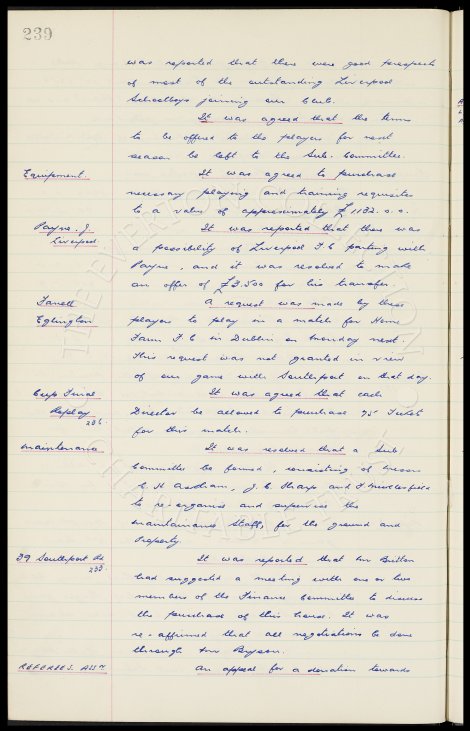 239
was reported that there were good prospects
of most of the outstanding Liverpool
Schoolboys joining our Club.
It was agreed that the terms
to be offered to the players for next
season be left to the Sub. Committee.
Equipment.
It was agreed to purchase
necessary playing and training requisites
to a value of approximately £1132.0.0.
Payne. J.
Liverpool.
It was reported that there was
a possibility of Liverpool F.C parting with
Payne, and it was resolved to make
an offer of £3.500 for his transfer.
Farrell
Eglington
A request was made by these
players to play in a match for Home
Farm. F.C in Dublin on Monday next.
This request was not granted in view
of our game with Southport on that day.
Cup Final
Replay
236.
It was agreed that each
Director be allowed to purchase 75 Ticket
for this match.
Maintenance
It was resolved that a Sub
Committee be formed, consisting of Messrs
J.C. Sharp and
to re-organise and supervise the
maintainance Staffs, for the ground and
Property
39 Southport Rd
It was reported that Mr Britton
had suggested a meeting with one or two
members of the Finance Committee to discuss
the purchase of this house. It was
re-affirmed that all negotiations be done
through Mr
REFEREES. ASSN
An appeal for a donation towards
THE EVERTON COLLECTION
CHARITABLE TRUST